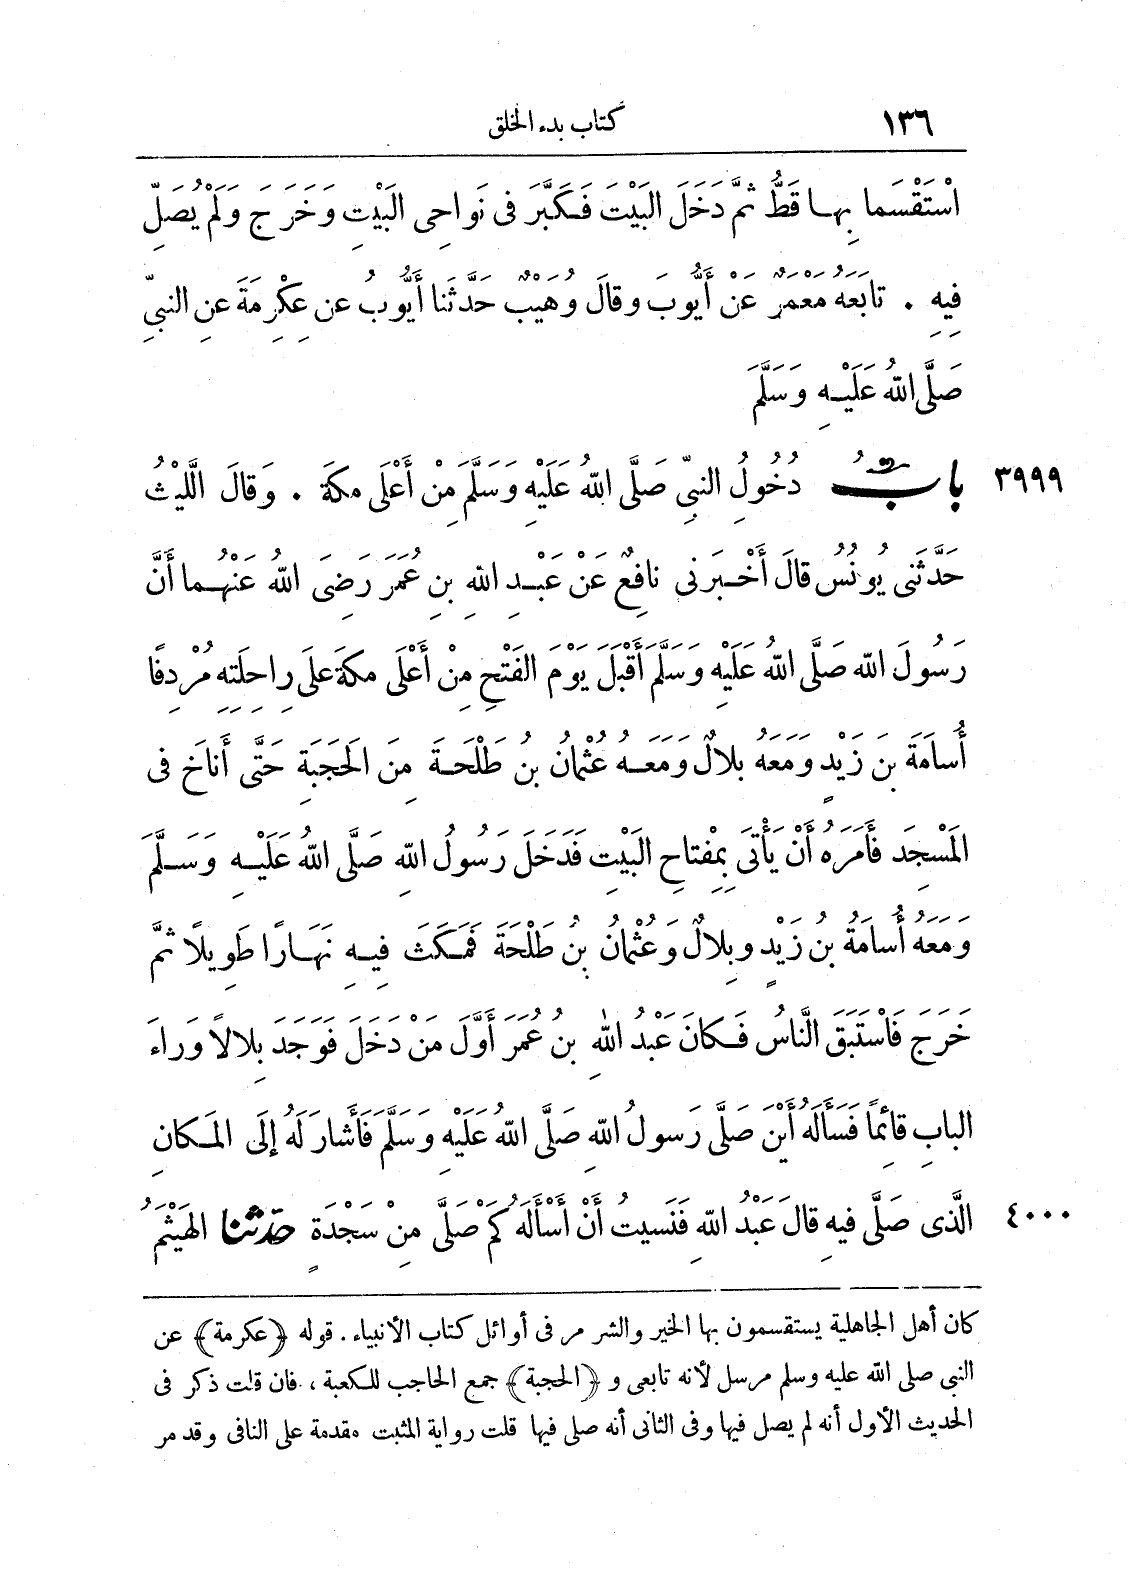 ١٣٦ كتاب بدء الخلق
اسْتَقْسَما بِهـا قَطُّ ثُمَّ دَخَلَ البَيْتَ فَـكَبَّرَ فى نَواحِى البَيْتِ وَخَرَجَ وَلَمْ يُصَلِّ
فِيهِ . تابَعَهُ مَعْمَرٌ عَنْ أَيُّوبَ وقالَ وُهَيْبٌ حَدَّثَنا أَيُّوبُ عن عِكْرِمَةَ عَنِ النبىِّ
صَلَّى اللهُ عَلَيْـهِ وَسَلَّمَ
٣٩٩٩ بابُ دُخُولِ النبىِّ صَلَّى اللهُ عَلَيْهِ وَسَلَّمَ مِنْ أَعْلَى مكَةَ . وَقالَ اللَّيْثُ
حَدَّثَنى يُونُسُ قالَ أَخْـبَرَنى نافِعٌ عَنْ عَبْـدِ اللهِ بنِ عُمَرَ رَضِىَ اللهُ عَنْهُـما أَنَّ
رَسُولَ الله صَلَّى اللهُ عَلَيْهِ وَسَلَّمَ أَقْبَلَ يَوْمَ الفَتْحِ مِنْ أَعْلَى مكَةَ علَى راحِلَتِهِ مُرْدِفًا
أُسامَةَ بنَ زَيْدٍ ومَعَهُ بِلالٌ ومَعَـهُ عُثْمانُ بنُ طَلْحَـةَ مِنَ الَحَجَبَةِ حَتَّى أَناخَ فى
المَسْجِدِ فَأَمَرَهُ أَنْ يَأْتِىَ بِمِفْتاحِ البَيْتِ فَدَخَلَ رَسُولُ اللهِ صَلَّى اللهُ عَلَيْـهِ وَسَـلَّمَ
ومَعَهُ أُسامَةُ بنُ زَيْدٍ وبِلالٌ وَعُثْمانُ بنُ طَلْحَةَ فَمَـكَثَ فِيـهِ نَهَـارًا طَوِيلًا ثُمَّ
خَرَجَ فَاسْتَبَقَ النَّاسُ فَـكانَ عَبْدُ اللهِ بنُ عُمَرَ أَوَّلَ مَنْ دَخَلَ فَوَجَدَ بِلالًا وَراءَ
البابِ قائِمًا فَسَأَلَهُ أَيْنَ صَلَّى رَسولُ اللهِ صَلَّى اللهُ عَلَيْهِ وَسَلَّمَ فَأَشارَ لَهُ إِلَى المَـكانِ
٤٠٠٠ الَّذى صَلَّى فِيهِ قالَ عَبْدُ اللهِ فَنَسِيتُ أَنْ أَسْأَلَهُ كَمْ صَلَّى مِنْ سَجْدَةٍ حَدَّثَنَا الهَيْثَمُ
كان أهل الجاهلية يستقسمون بها الخير والشر مر فى أوائل كتاب الأنبياء . قوله ﴿عكرمة﴾ عن
النبى صلى الله عليه وسلم مرسل لأنه تابعى و ﴿الحجبة﴾ جمع الحاجب للكعبة ، فان قلت ذكر فى
الحديث الأول أنه لم يصل فيها وفى الثانى أنه صلى فيها قلت رواية المثبت مقدمة على النافى وقد مر